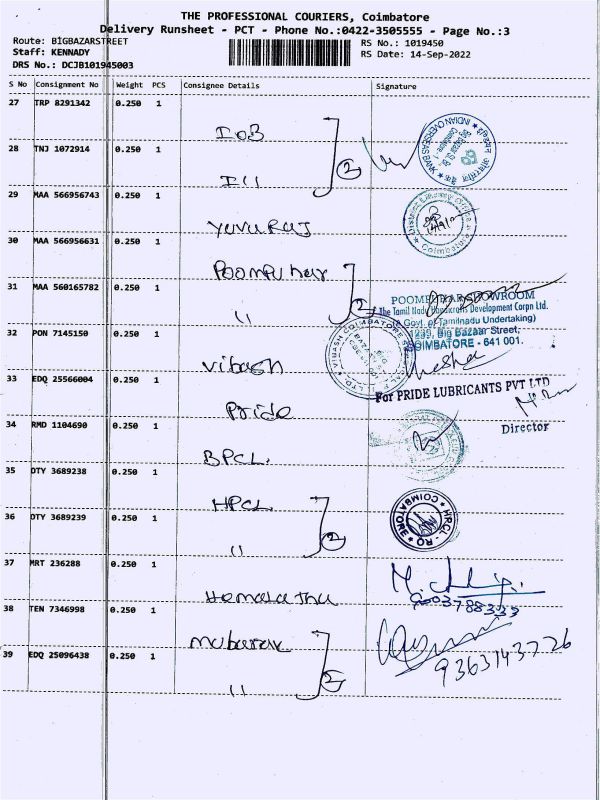 THE PROFESSIONAL COURIERS, Coimbatore
Delivery Runsheet - PCT - Phone No.:0422-3505555 - Page No.:3
Route: BIGBAZARSTREET
Staff: KENNADY
DRS No.: DCJB101945003
RS No.: 1019450
RS Date: 14-Sep-2022
S No Consignment No Weight PCS Consignee Details Signature
27 TRP 8291342 0.250 1 IOB
28 TNJ 1072914 0.250 1 I11 2
INDIAN OVERSEAS BANK
29 MAA 566956743 0.250 1 YUVURAJ
Coimbatore
30 MAA 566956631 0.250 1 Poompuhar
31 MAA 560165782 0.250 1 11 2
POOMPUHAR SHOWROOM
The Tamil Nadu Handicrafts Development Corpn Ltd.
(A Govt. of Tamilnadu Undertaking)
1239, Big Bazaar Street,
COIMBATORE - 641 001.
32 PON 7145150 0.250 1 Vibash
VIBASH COIMBATORE
33 EDQ 25566004 0.250 1 Pride
For PRIDE LUBRICANTS PVT LTD
Director
34 RMD 1104690 0.250 1 BPCL
35 OTY 3689238 0.250 1 HPCL
36 OTY 3689239 0.250 1 11 2
HPCL - RO COIMBATORE
37 MRT 236288 0.250 1 Hemalatha
9003788339
38 TEN 7346998 0.250 1 mubarak
39 EDQ 25096438 0.250 1 11 2
9363143726